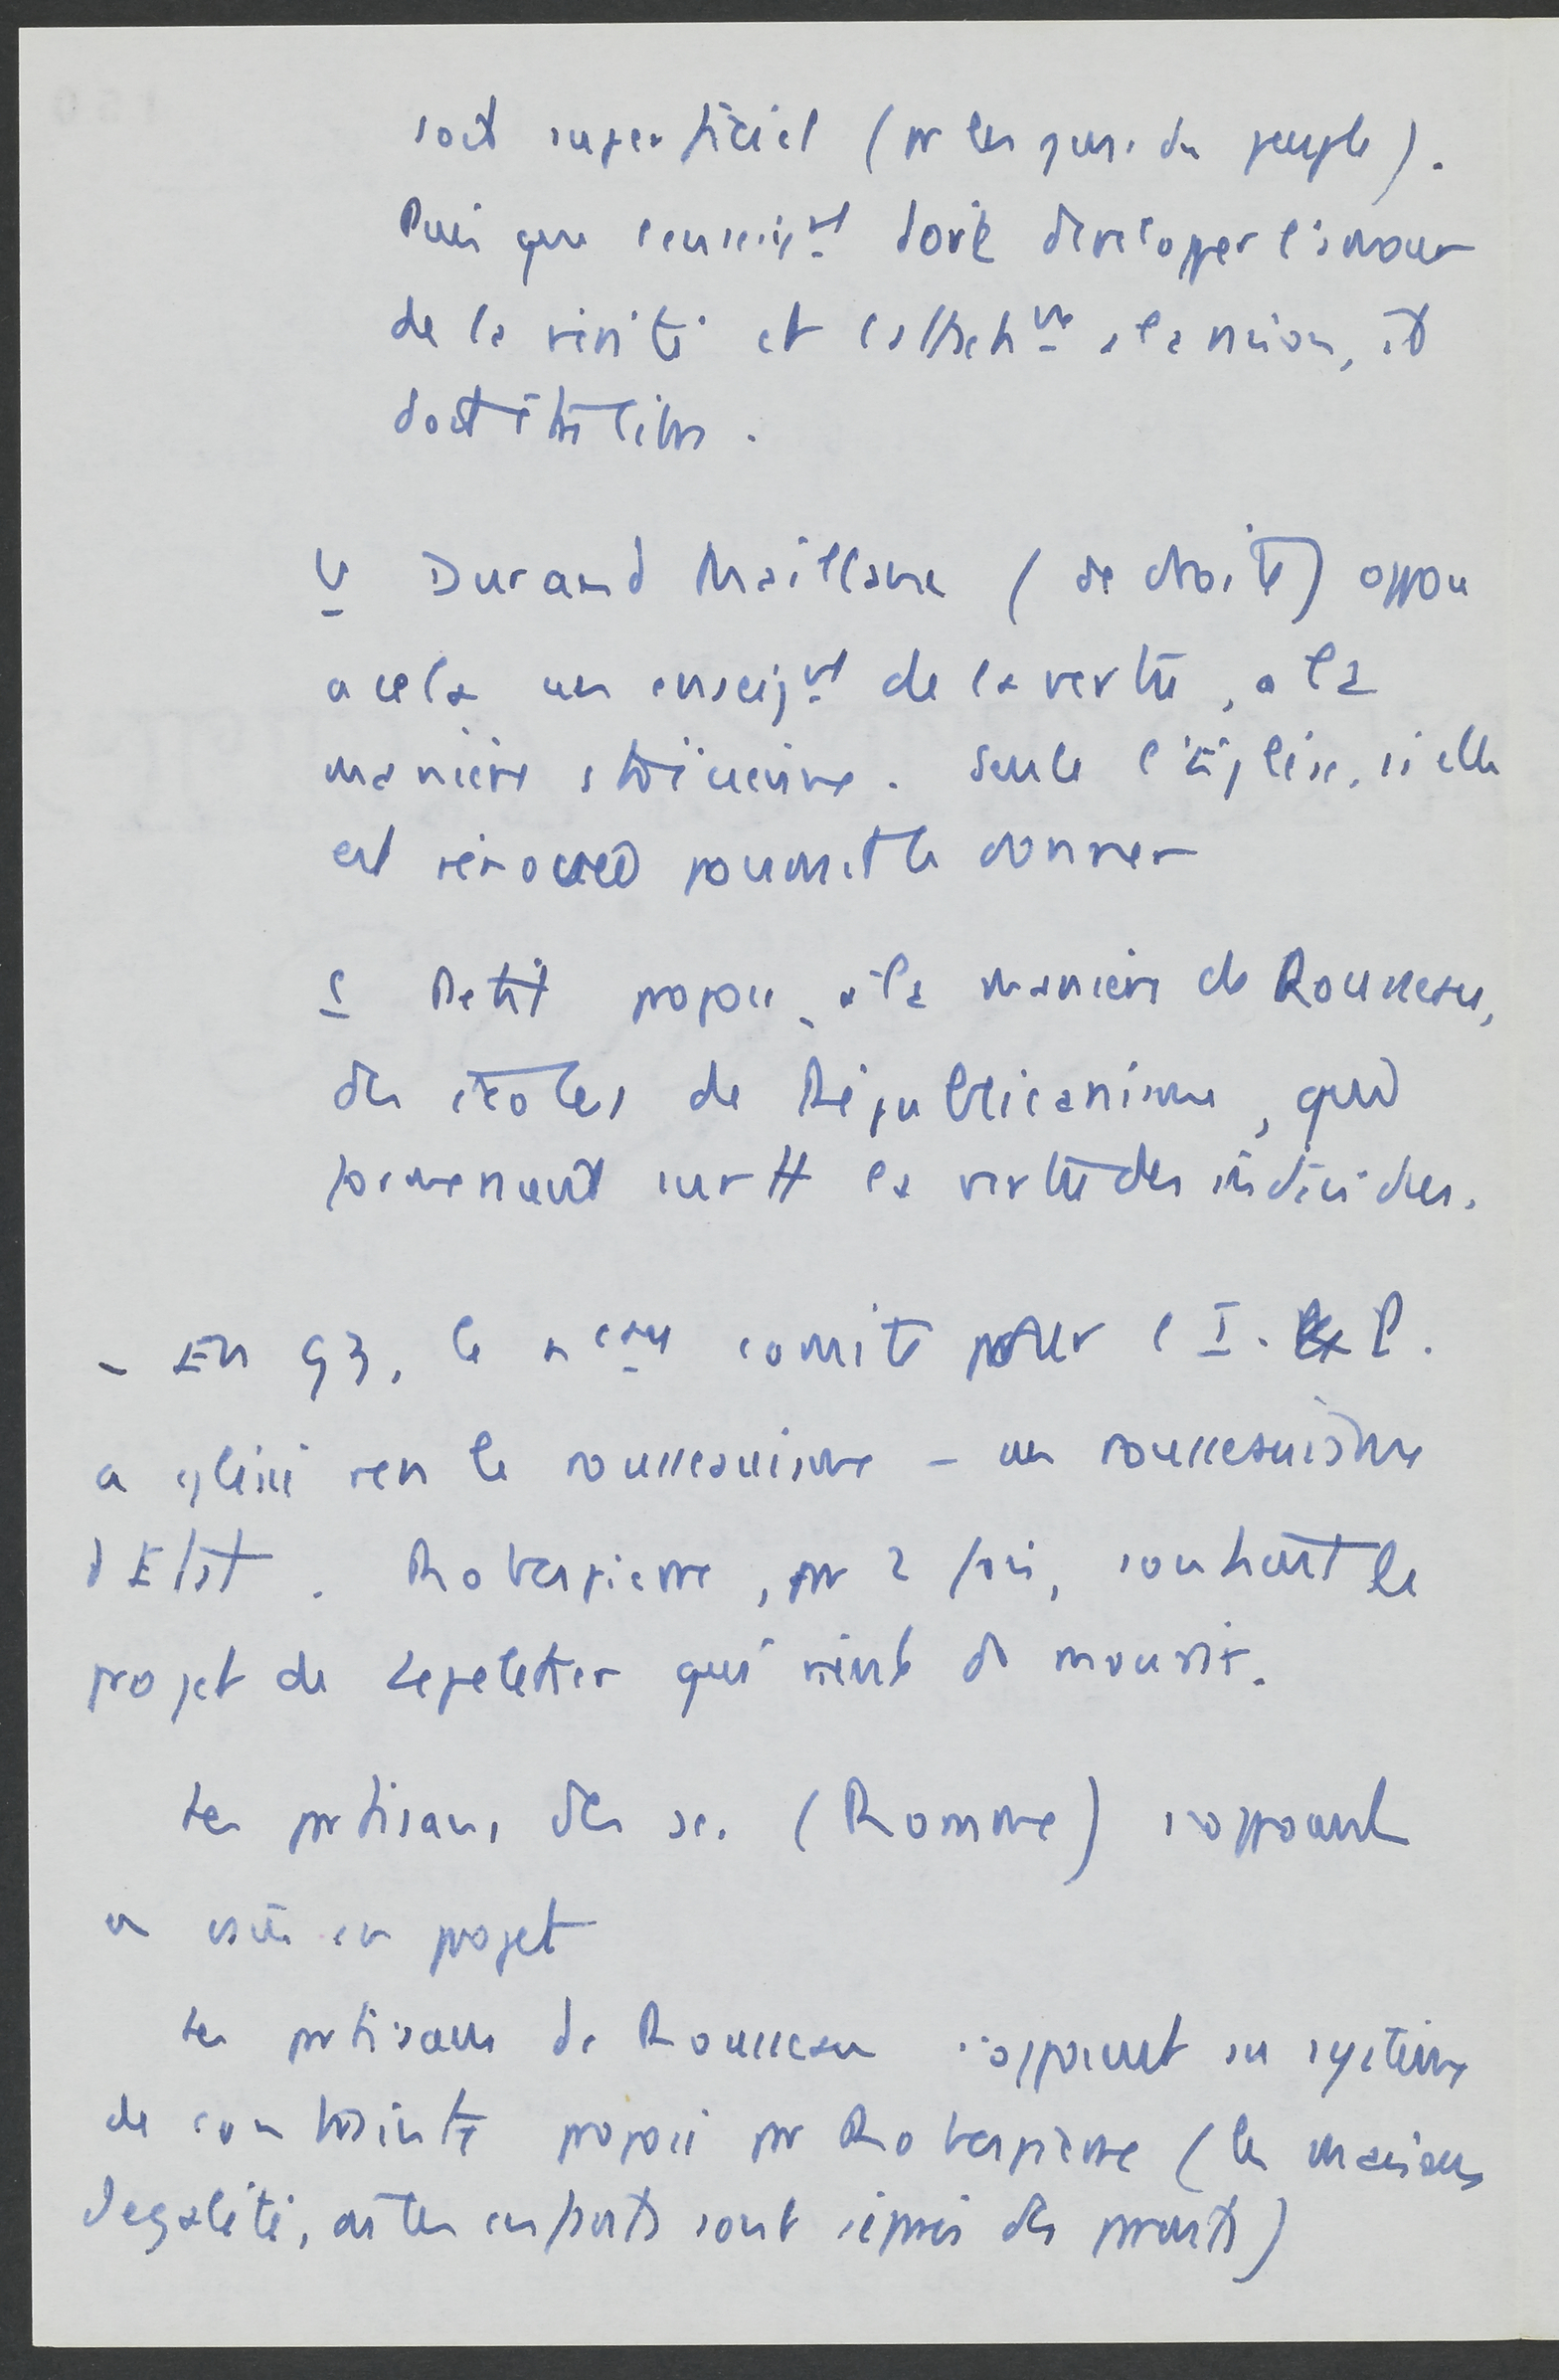 soit superficiel (pr les gens du peuple).
Puis que l'enseigt doit développer l'amour
de la vérité et l'attacht à la nation, il
doit être libre.
b Durand Maillane (de droite) oppose
a cela un enseigt de la vertu, a la
manière stoïcienne. Seule l'Église, si elle
est rénovée pourrait le donner
c Petit propose, à la manière de Rousseau,
des écoles de Républicanisme, qui
formeraient surtt la vertu des individus.
- En 93, le nveau comité pour l'I. P.
a glissé vers le rousseauisme - un rousseauisme
d'Etat. Robespierre, pr 2 fois, soutient le
projet de Lepeletier qui vient de mourir.
Les partisans des sc. (Romme) s'opposent
a ce projet
Les partisans de Rousseau s'opposent au système
de contrainte proposé par Robespierre (les maisons
d'égalité, où les enfants sont séparés des parents)